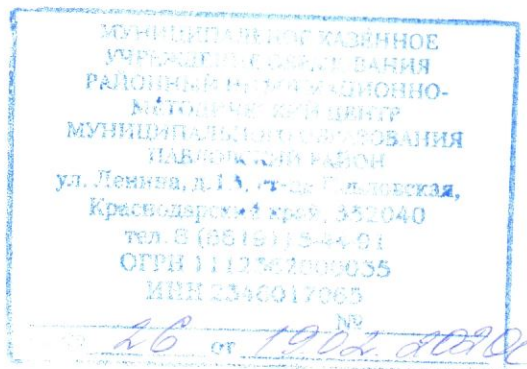 МУНИЦИПАЛЬНОЕ КАЗЁННОЕ
УЧРЕЖДЕНИЕ ОБРАЗОВАНИЯ
РАЙОННЫЙ ИНФОРМАЦИОННО-
МЕТОДИЧЕСКИЙ ЦЕНТР
МУНИЦИПАЛЬНОГО ОБРАЗОВАНИЯ
ПАВЛОВСКИЙ РАЙОН
ул. Ленина, ст-ца Павловская,
Краснодарский край, 352040
тел. 8 (86191) 5-44-01
ОГРН
ИНН
№
26 от 19.02.2020г